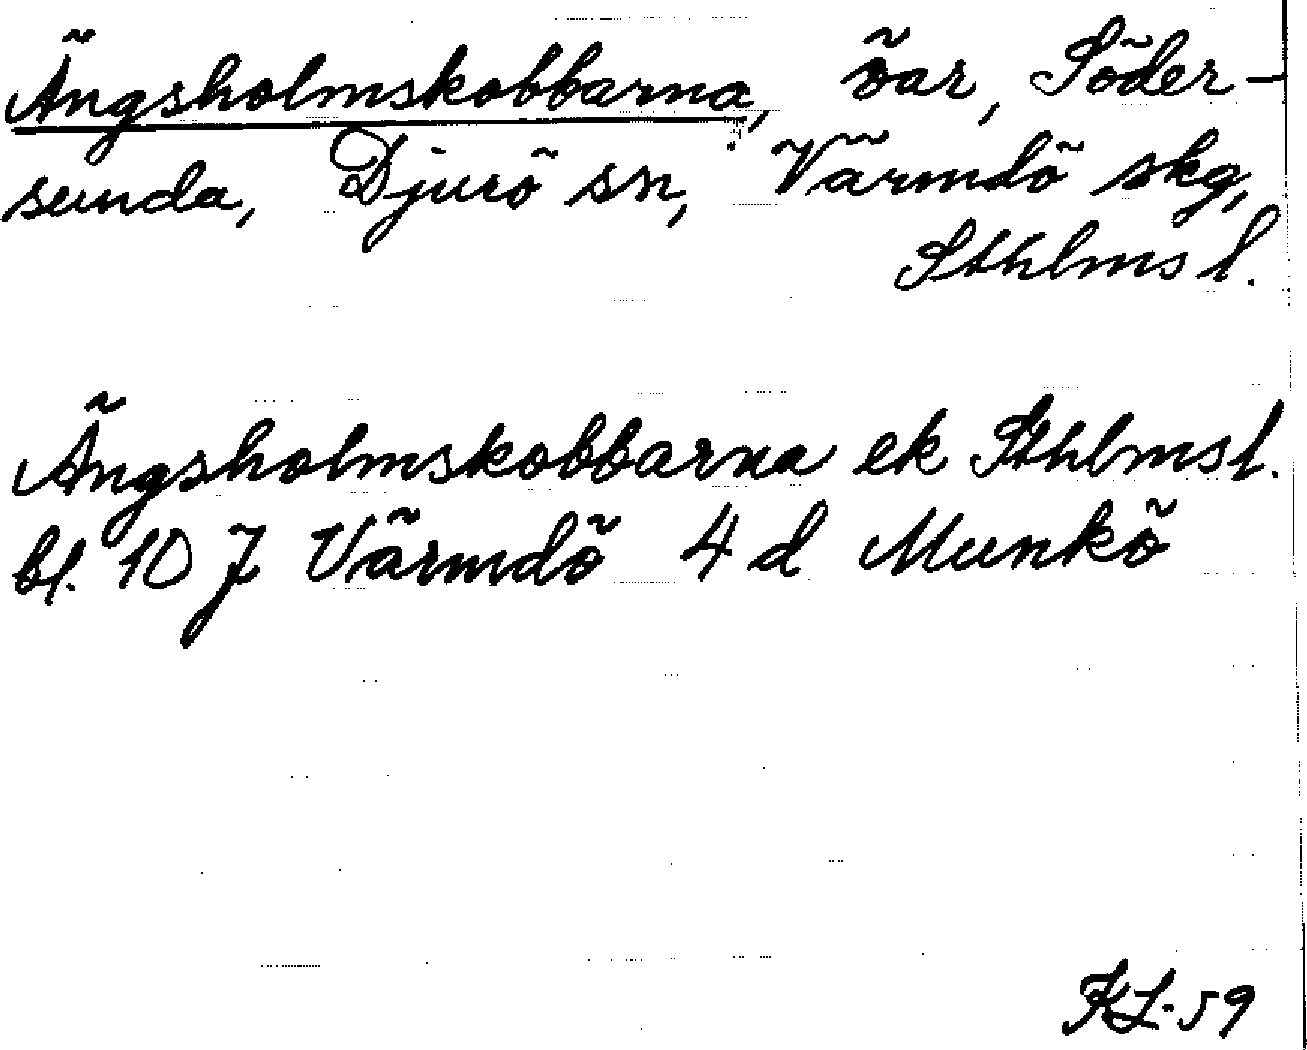 Ängsholmskobbarna, öar, Söder-
sunda, Djurö sn, Värmdö skg,
Sthlms l.
Ängsholmskobbarna ek Sthlms l.
bl. 10 J Värmdö 4 d Munkö
KL-59